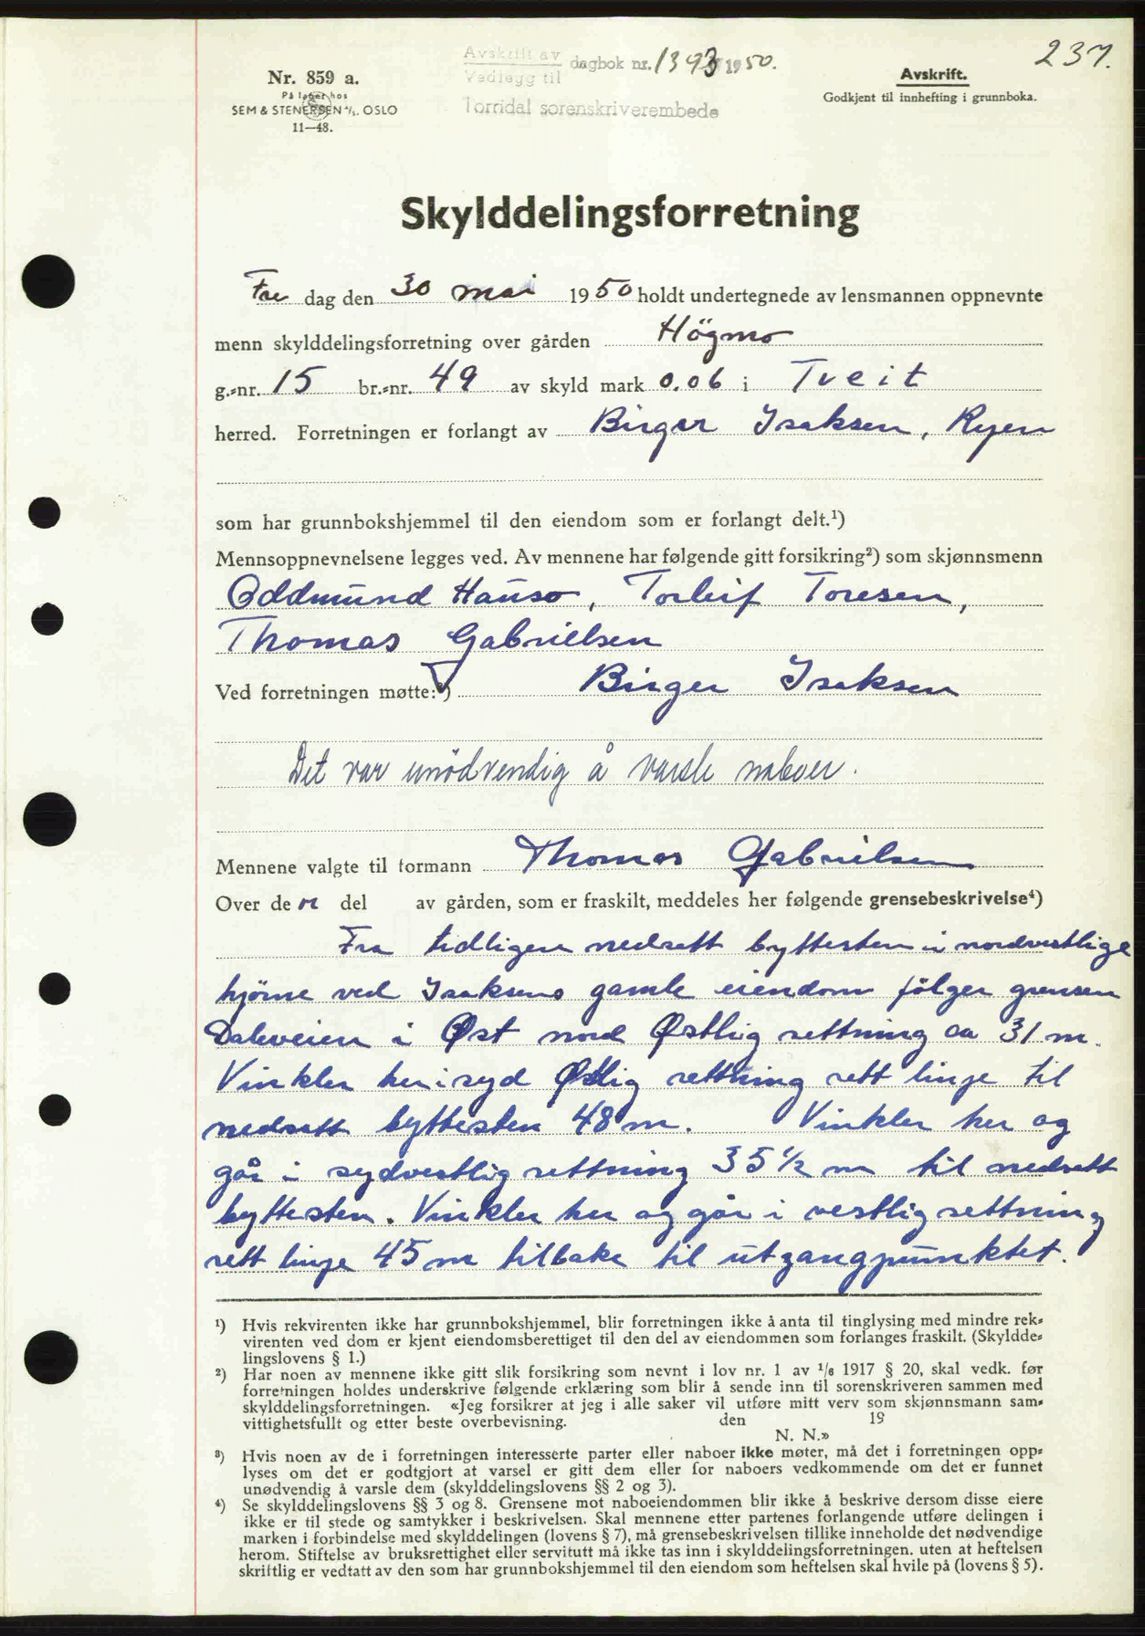 237.
Avskrift av
Vedlegg til
dagbok nr. 1393 1950.
Torridal sorenskriverembede
Nr. 859 a.
På lager hos
SEM & STENERSEN A/S. OSLO
11—48.
Avskrift.
Godkjent til innhefting i grunnboka.
Skylddelingsforretning
Fre dag den 30 mai 1950 holdt undertegnede av lensmannen oppnevnte
menn skylddelingsforretning over gården Högmo
g.-nr. 15 br.-nr. 49 av skyld mark 0.06 i Tveit
herred. Forretningen er forlangt av Birger Isaksen, Ryen
som har grunnbokshjemmel til den eiendom som er forlangt delt.¹)
Mennsoppnevnelsene legges ved. Av mennene har følgende gitt forsikring²) som skjønnsmenn
Oddmund Hauso, Torleif Toresen,
Thomas Gabrielsen
Ved forretningen møtte:³) Birger Isaksen
Det var unödvendig å varsle naboer.
Mennene valgte til formann Thomas Gabrielsen
Over den del av gården, som er fraskilt, meddeles her følgende grensebeskrivelse⁴)
Fra tidligere nedsatt byttesten i nordvestlige
hjørne ved Isaksens gamle eiendom følger grensen
Daleveien i Øst nord Østlig rettning ca 31 m.
Vinkler her i syd Østlig rettning rett linje til
nedsatt byttesten 48 m. Vinkler her og
går i sydvestlig rettning 35 ½ m til nedsatt
byttesten. Vinkler her og går i vestlig rettning
rett linje 45 m tilbake til utgangpunktet.
¹) Hvis rekvirenten ikke har grunnbokshjemmel, blir forretningen ikke å anta til tinglysing med mindre rek-
virenten ved dom er kjent eiendomsberettiget til den del av eiendommen som forlanges fraskilt. (Skyldde-
lingslovens § 1.)
²) Har noen av mennene ikke gitt slik forsikring som nevnt i lov nr. 1 av 1/6 1917 § 20, skal vedk. før
forretningen holdes underskrive følgende erklæring som blir å sende inn til sorenskriveren sammen med
skylddelingsforretningen. «Jeg forsikrer at jeg i alle saker vil utføre mitt verv som skjønnsmann sam-
vittighetsfullt og etter beste overbevisning. den 19
N. N.»
³) Hvis noen av de i forretningen interesserte parter eller naboer ikke møter, må det i forretningen opp-
lyses om det er godtgjort at varsel er gitt dem eller for naboers vedkommende om det er funnet
unødvendig å varsle dem (skylddelingslovens §§ 2 og 3).
⁴) Se skylddelingslovens §§ 3 og 8. Grensene mot naboeiendommen blir ikke å beskrive dersom disse eiere
ikke er til stede og samtykker i beskrivelsen. Skal mennene etter partenes forlangende utføre delingen i
marken i forbindelse med skylddelingen (lovens § 7), må grensebeskrivelsen tillike inneholde det nødvendige
herom. Stiftelse av bruksrettighet eller servitutt må ikke tas inn i skylddelingsforretningen, uten at heftelsen
skriftlig er vedtatt av den som har grunnbokshjemmel til den eiendom som heftelsen skal hvile på (lovens § 5).